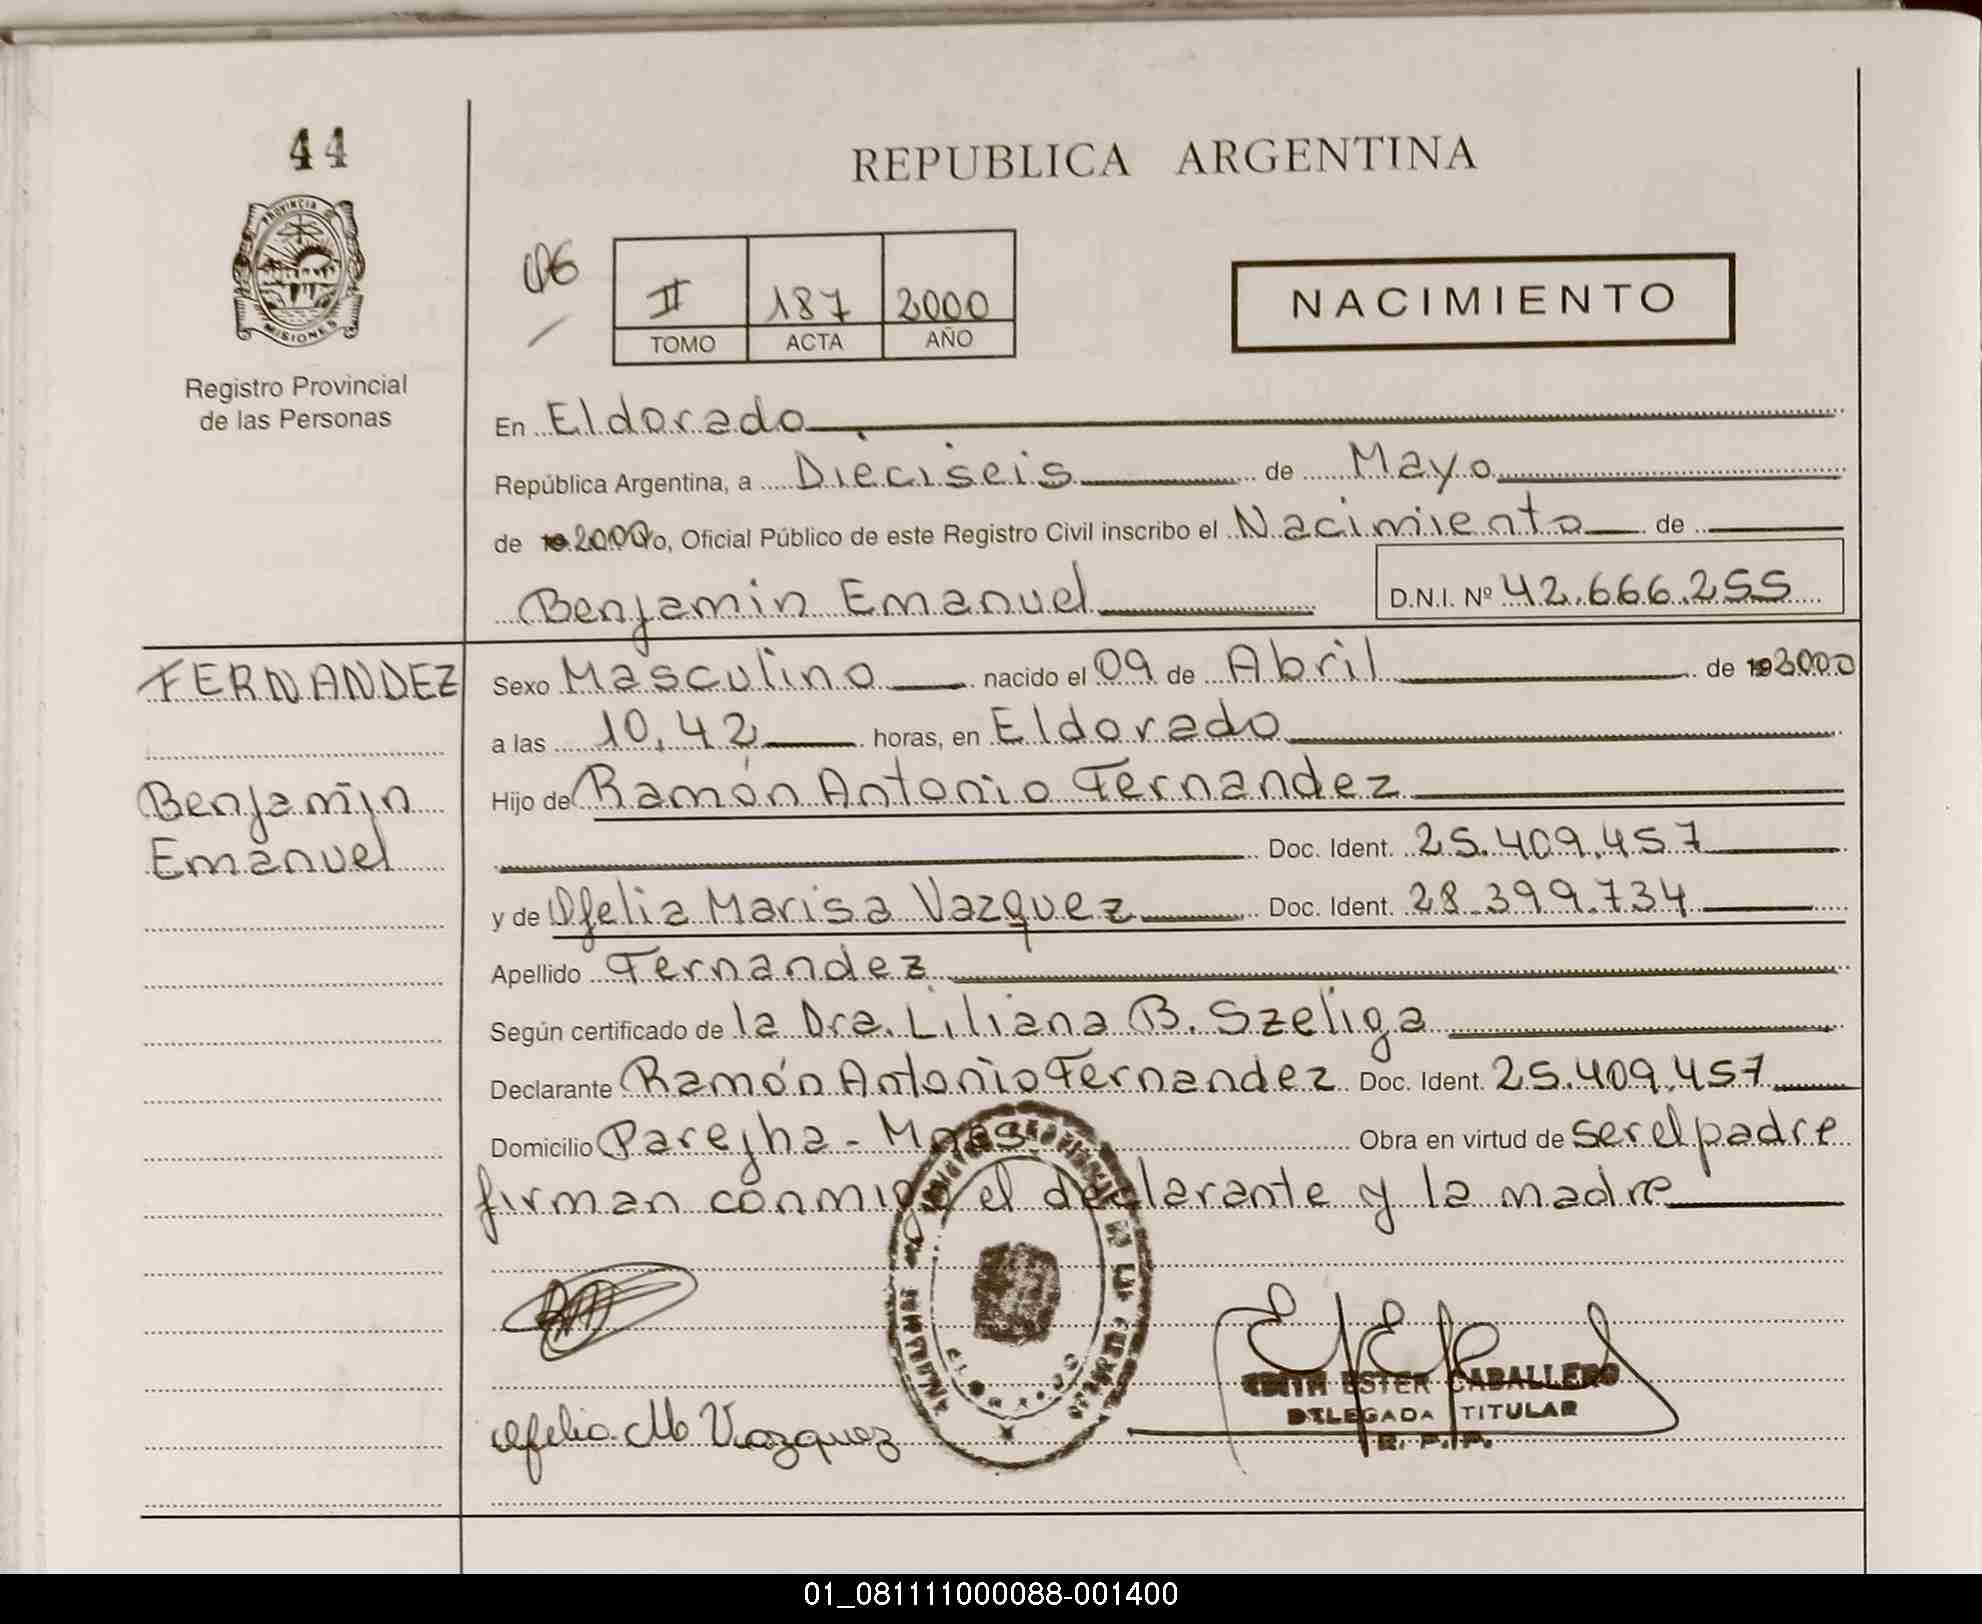 44
REPUBLICA ARGENTINA
PROVINCIA DE
MISIONES
Registro Provincial
de las Personas
II 187 2000
TOMO ACTA AÑO
NACIMIENTO
En Eldorado
República Argentina, a Dieciseis de Mayo
de 2000 yo, Oficial Público de este Registro Civil inscribo el Nacimiento de
Benjamin Emanuel D.N.I. Nº 42.666.255
FERNANDEZ
Benjamin
Emanuel
Sexo Masculino nacido el 09 de Abril de 192000
a las 10,42 horas, en Eldorado
Hijo de Ramón Antonio Fernandez
Doc. Ident. 25.409.457
y de Ofelia Marisa Vazquez Doc. Ident. 28.399.734
Apellido Fernandez
Según certificado de la Dra. Liliana B. Szeliga
Declarante Ramón Antonio Fernandez Doc. Ident. 25.409.457
Domicilio Parejha - Mnes Obra en virtud de ser el padre
firman conmigo el declarante y la madre
Ofelia M Vazquez
EDITH ESTER CABALLERO
DELEGADA TITULAR
R. P. P.
01_081111000088-001400